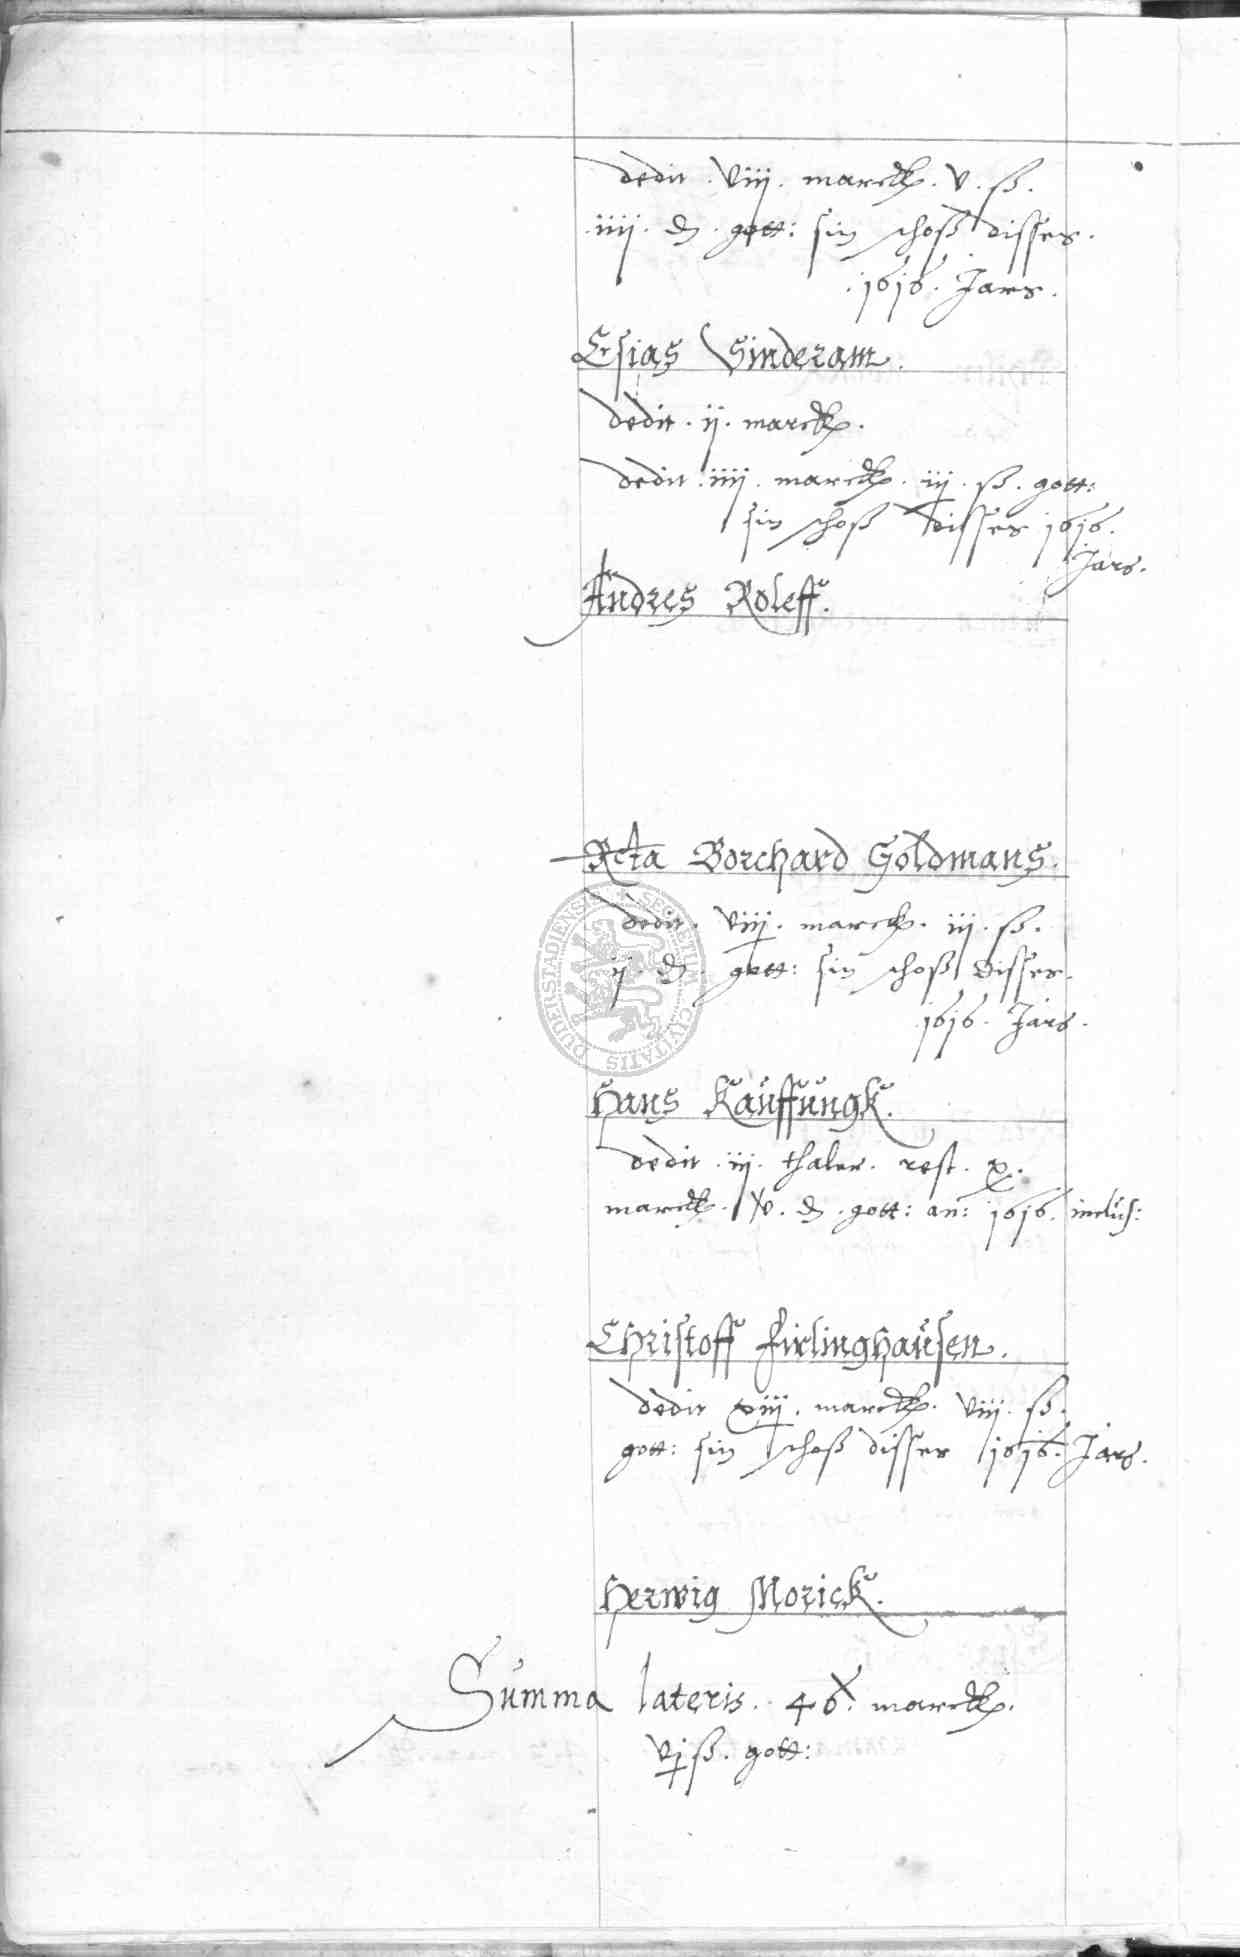 dedit . viij . marck . v . ß .
. iiij . d . gott : sin schoß disses .
. 1616 . Jars .
Esias Sinderam .
dedit . ij . marck .
dedit . iiij . marck . iij . ß . gott :
sin schoß disses 1616 .
Jars .
Andres Roleff .
Relicta Borchard Goldmans .
dedit . viij . marck . iij . ß .
ij . d . gott : sin schoß disses .
. 1616 . Jars .
Hans Kauffungk .
dedit . iij . thaler . rest . x .
marck . v . d . gott : an : 1616 . inclus :
Christoff Firlinghausen .
dedit xiij . marck . viij . ß .
gott : sin schoß disses 1616 . Jars .
Herwig Morick .
Summa lateris . 46 . marck .
vj ß . gott :
SECRETUM CIVITATIS DUDERSTADIENSIS